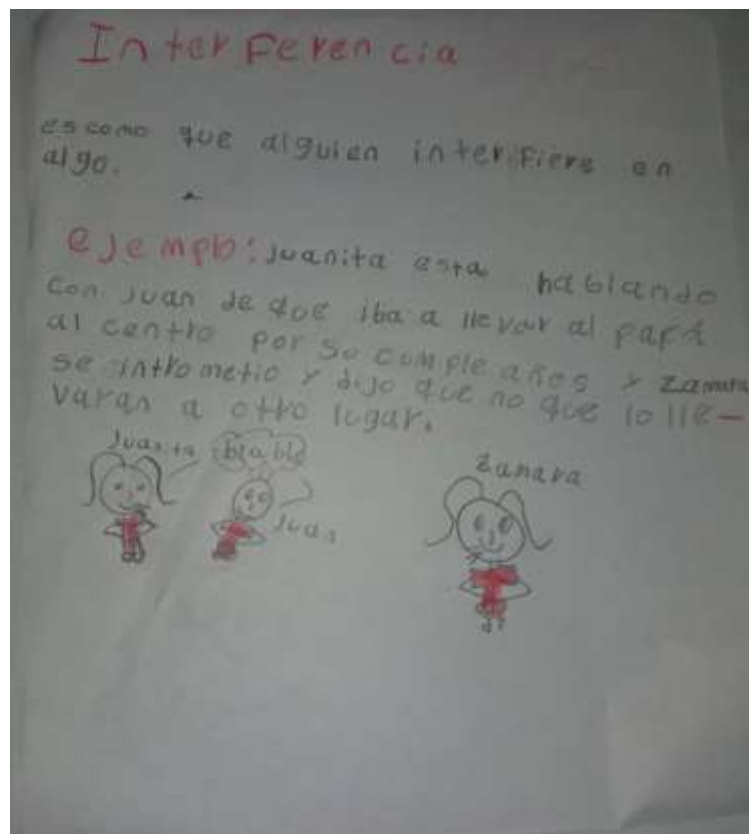 Interferencia
es como que alguien interfiere en
algo.
ejemplo: Juanita esta hablando
con Juan de que iba a llevar al papá
al centro por su cumpleaños y
se intrometio y dijo que no que lo lle-
varan a otro lugar.
Juanita bla bla
Juan
Zamara